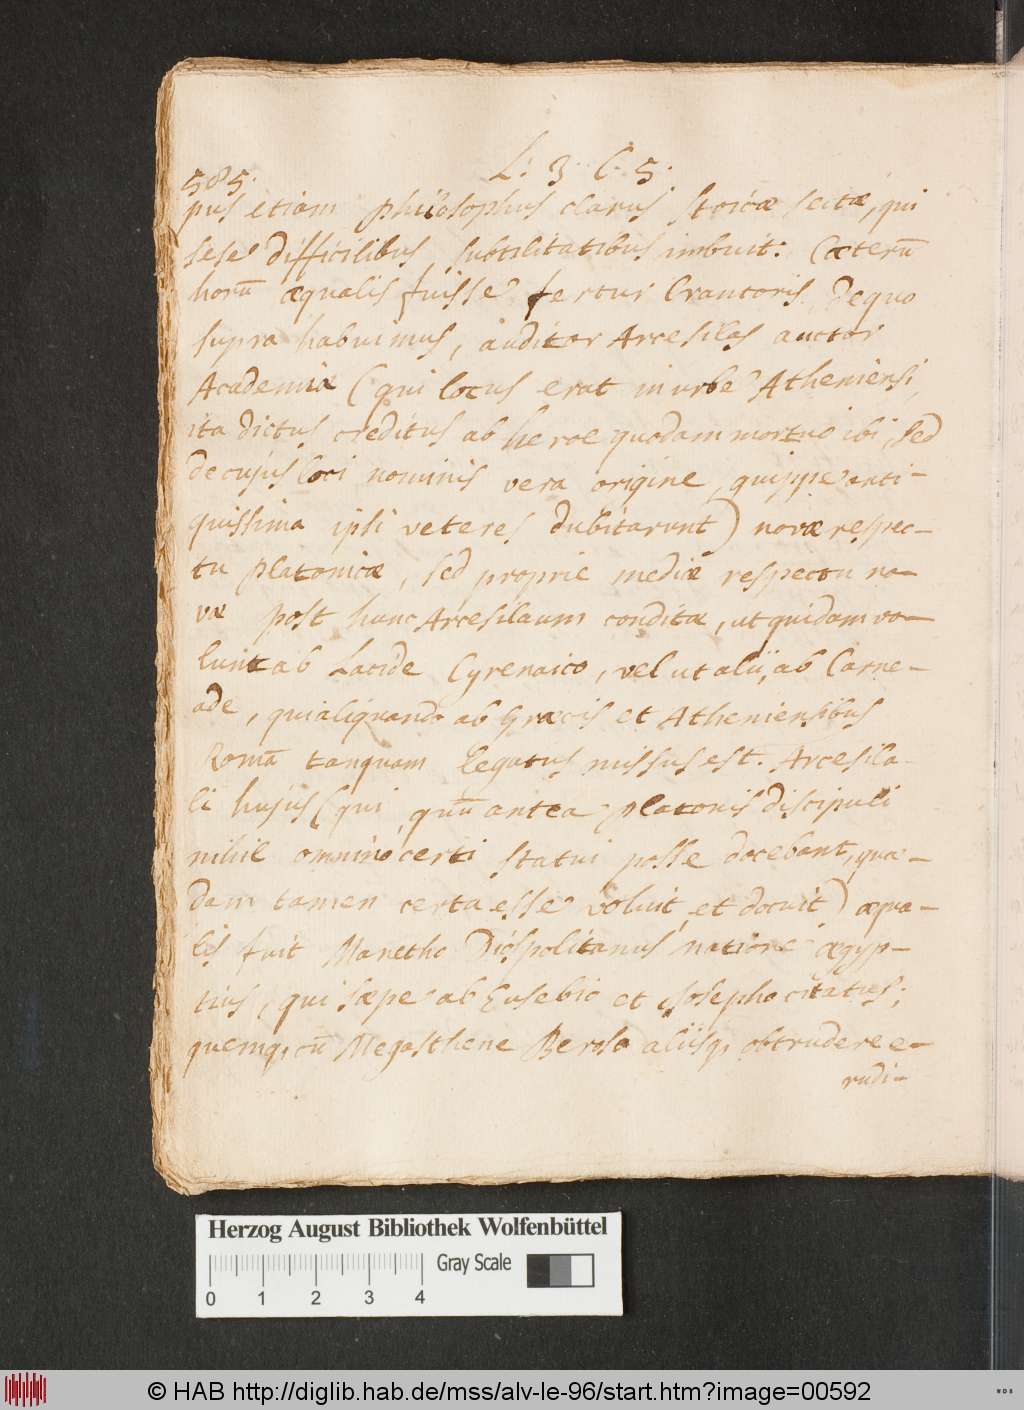 585.
L: 3 C. 5.
pus etiam philosophus clarus Stoicæ sectæ, qui
sese difficilibus subtilitatibus imbuit. Cæterũ
horũ æqualis fuisse fertur Crantoris, de quo
supra habuimus, auditor Arcesilas auctor
Academiæ (qui locus erat in urbe Atheniensi,
ita dictus creditus ab heroe quodam mortuo ibi, sed
de cujus loci nominis vera origine, quippe anti-
quissima ipsi veteres dubitarunt) novæ respec-
tu Platonicæ, sed proprie mediæ respectu no-
væ post hunc Arcesilaum conditæ, ut quidam vo-
lunt ab Lacide Cyrenaico, vel ut alii, ab Carne-
ade, qui aliquando ab Græcis et Atheniensibus
Romã tanquam legatus missus est. Arcesila-
li hujus (qui, quũ antea Platonis discipuli
nihil omnino certi statui posse docebant, quæ-
dam tamen certa esse voluit et docuit) æqua-
lis fuit Manetho Diospolitanus natione ægyp-
tius, qui sæpe ab Eusebio et Josepho citatus;
quemq, cũ Megasthene Beroso aliisq, obtrudere e-
rudi-
Herzog August Bibliothek Wolfenbüttel
Gray Scale
0 1 2 3 4
© HAB http://diglib.hab.de/mss/alv-le-96/start.htm?image=00592